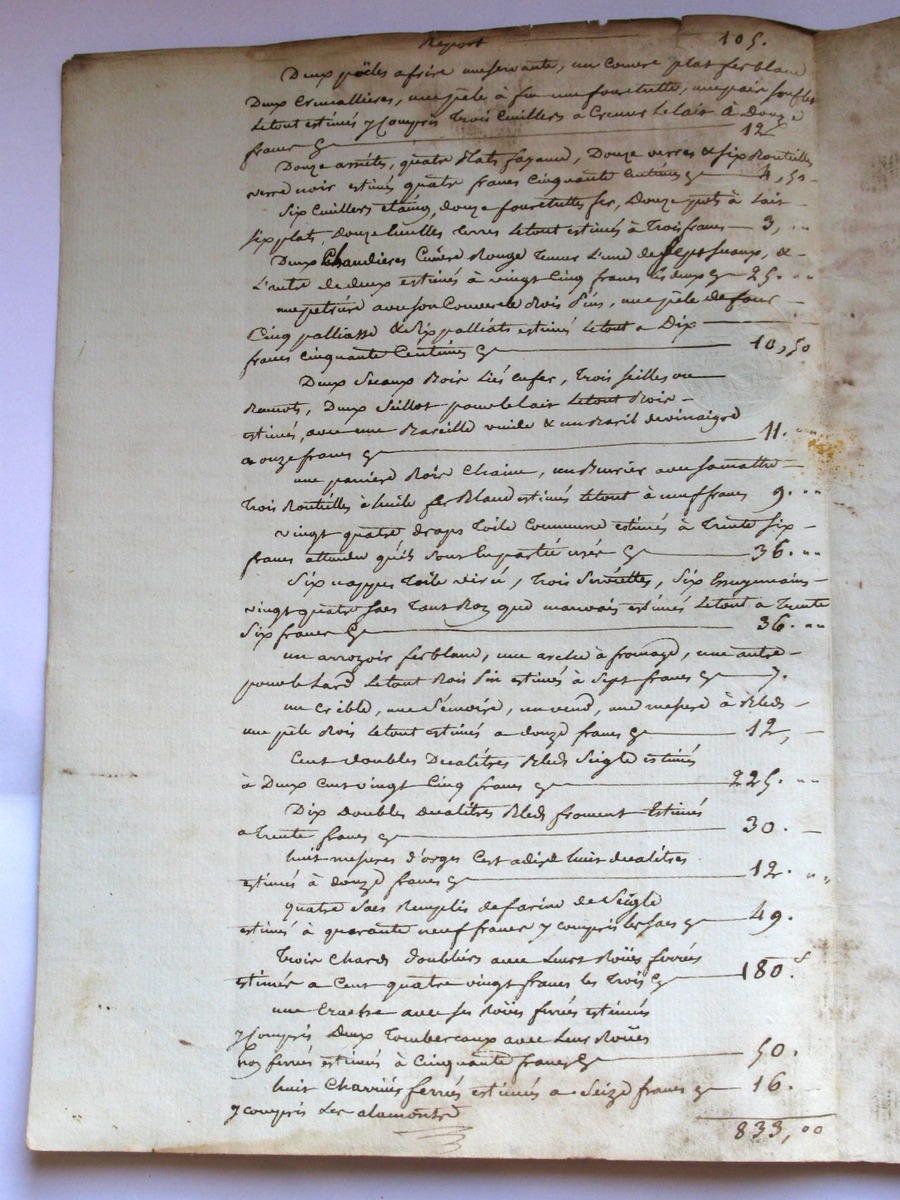 Report 105.
Deux poëles a frire une servante, un couvre plat fer blanc
Deux Cremallières, une pèle à feu une fourchette, une pair souflet
Le tout estimés y Compris Trois Cuillers à Cremer Le lait à Douze
francs 12
Douze assiétes, quatre Plats fayance, Douze verres & six Bouteilles
verre noir estimés quatre francs Cinquante Centimes 4,50
Six Cuillers etaing, douze fourchettes fer, Douze pots à Lait
six plats douze terres Le tout estimés à Trois francs 3,
Deux Chaudières Cuivre Rouge Tenue L'une de sept seaux, &
L'autre de deux estimés à vingt Cinq francs les deux 25.
une petrière avec son Couvercle Bois Pin, une pèle de four
Cinq palliasse & six palliats estimés Le tout a Dix
francs cinquante Centimes 10,50
Deux Seaux Bois Liés en fer, Trois seilles ou
Deux Seillot pour le lait Le tout Bois
estimés, avec une Bareille vuide & un Baril de vinaigre
a onze francs 11.
une panière Bois Chaine, un Burrier avec sa
Trois Bouteilles à huile fer Blanc estimés Le tout à neuf francs 9.
vingt quatre draps Toile Commune estimés à Trente Six
francs attendu qu'ils sont En partié usée 36.
Six nappes Toile , Trois Serviettes, Six Essuymains
vingt quatre sacs Tant Bon que mauvais estimés Le tout a Trente
Six francs 36.
un arrozoir fer blanc, une arche à fromage, une autre
pour le Lard Le tout Bois Pin estimés à Sept francs 7.
un Crible, une , un vend, une mesure à Bleds
une pèle Bois Le tout estimés a douze francs 12,
Cent doubles Decalitres Bleds Seigle estimés
à Deux cent vingt Cinq francs 225.
Dix Doubles Decalitres Bleds froment Estimés
a Trente francs 30.
huit mesures d'orges C'est a dire huit decalitres
estimés à douze francs 12.
quatre Sacs Remplis de farine de Seigle
estimés à quarante neuf francs y compris les sacs 49.
Trois Chards avec Leurs Roües ferrées
estimés a Cent quatre vingt francs les Trois 180.
une avec ses Roües ferrés estimés
y Compris Deux Tombereaux avec Leurs Roües
non ferrés estimés à Cinquante francs 50.
huit Charriés ferrés estimés a Seize francs 16.
y compris Les
833,00